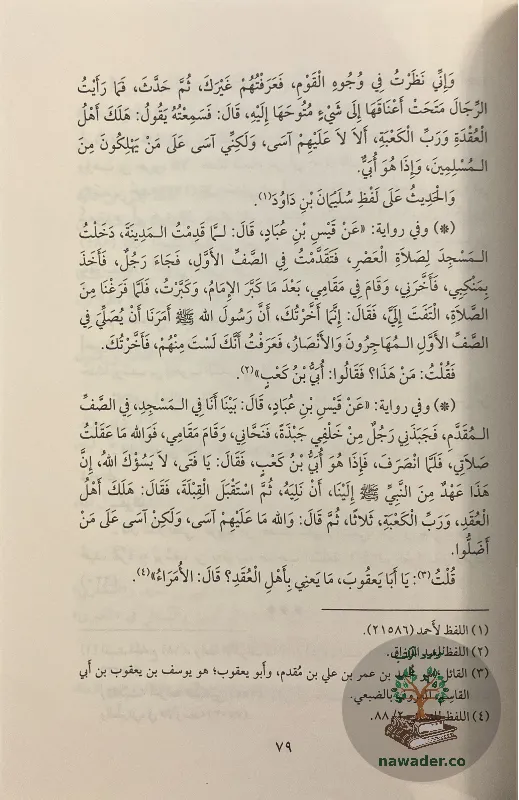 وَإِنِّي نَظَرْتُ فِي وُجُوهِ الْقَوْمِ، فَعَرَفْتُهُمْ غَيْرَكَ، ثُمَّ حَدَّثَ، فَمَا رَأَيْتُ
الرِّجَالَ مَتَحَتْ أَعْنَاقَهَا إِلَى شَيْءٍ مُتُوحَهَا إِلَيْهِ، قَالَ: فَسَمِعْتُهُ يَقُولُ: هَلَكَ أَهْلُ
الْعُقْدَةِ وَرَبِّ الْكَعْبَةِ، أَلَا لَا عَلَيْهِمْ آسَى، وَلَكِنِّي آسَى عَلَى مَنْ يَهْلِكُونَ مِنَ
الْمُسْلِمِينَ، وَإِذَا هُوَ أُبَيٌّ.
وَالْحَدِيثُ عَلَى لَفْظِ سُلَيْمَانَ بْنِ دَاوُدَ(١).
(*) وفي رواية: «عَنْ قَيْسِ بْنِ عُبَادٍ، قَالَ: لَمَّا قَدِمْتُ الْمَدِينَةَ، دَخَلْتُ
الْمَسْجِدَ لِصَلَاةِ الْعَصْرِ، فَتَقَدَّمْتُ فِي الصَّفِّ الأَوَّلِ، فَجَاءَ رَجُلٌ، فَأَخَذَ
بِمَنْكِبِي، فَأَخَّرَنِي، وَقَامَ فِي مَقَامِي، بَعْدَ مَا كَبَّرَ الإِمَامُ، وَكَبَّرْتُ، فَلَمَّا فَرَغْنَا مِنَ
الصَّلَاةِ، الْتَفَتَ إِلَيَّ، فَقَالَ: إِنَّمَا أَخَّرْتُكَ، أَنَّ رَسُولَ الله ﷺ أَمَرَنَا أَنْ يُصَلِّيَ فِي
الصَّفِّ الأَوَّلِ الْمُهَاجِرُونَ وَالأَنْصَارُ، فَعَرَفْتُ أَنَّكَ لَسْتَ مِنْهُمْ، فَأَخَّرْتُكَ.
فَقُلْتُ: مَنْ هَذَا؟ فَقَالُوا: أُبَيُّ بْنُ كَعْبٍ»(٢).
(*) وفي رواية: «عَنْ قَيْسِ بْنِ عُبَادٍ، قَالَ: بَيْنَا أَنَا فِي الْمَسْجِدِ، فِي الصَّفِّ
الْمُقَدَّمِ، فَجَبَذَنِي رَجُلٌ مِنْ خَلْفِي جَبْذَةً، فَنَحَّانِي، وَقَامَ مَقَامِي، فَوَالله مَا عَقَلْتُ
صَلَاتِي، فَلَمَّا انْصَرَفَ، فَإِذَا هُوَ أُبَيُّ بْنُ كَعْبٍ، فَقَالَ: يَا فَتَى، لَا يَسُؤْكَ اللهُ، إِنَّ
هَذَا عَهْدٌ مِنَ النَّبِيِّ ﷺ إِلَيْنَا، أَنْ نَلِيَهُ، ثُمَّ اسْتَقْبَلَ الْقِبْلَةَ، فَقَالَ: هَلَكَ أَهْلُ
الْعُقَدِ، وَرَبِّ الْكَعْبَةِ، ثَلَاثًا، ثُمَّ قَالَ: وَالله مَا عَلَيْهِمْ آسَى، وَلَكِنْ آسَى عَلَى مَنْ
أَضَلُّوا.
قُلْتُ(٣): يَا أَبَا يَعْقُوبَ، مَا يَعْنِي بِأَهْلِ الْعُقَدِ؟ قَالَ: الأُمَرَاءُ»(٤).
(١) اللفظ لأحمد (٢١٥٨٦).
(٢) اللفظ لعبد الرزاق.
(٣) القائل؛ محمد بن عمر بن علي بن مُقدم، وأبو يعقوب؛ هو يوسف بن يعقوب بن أبي
القاسم المعروف بالضبعي.
(٤) اللفظ ٢/ ٨٨.
٧٩
nawader.co